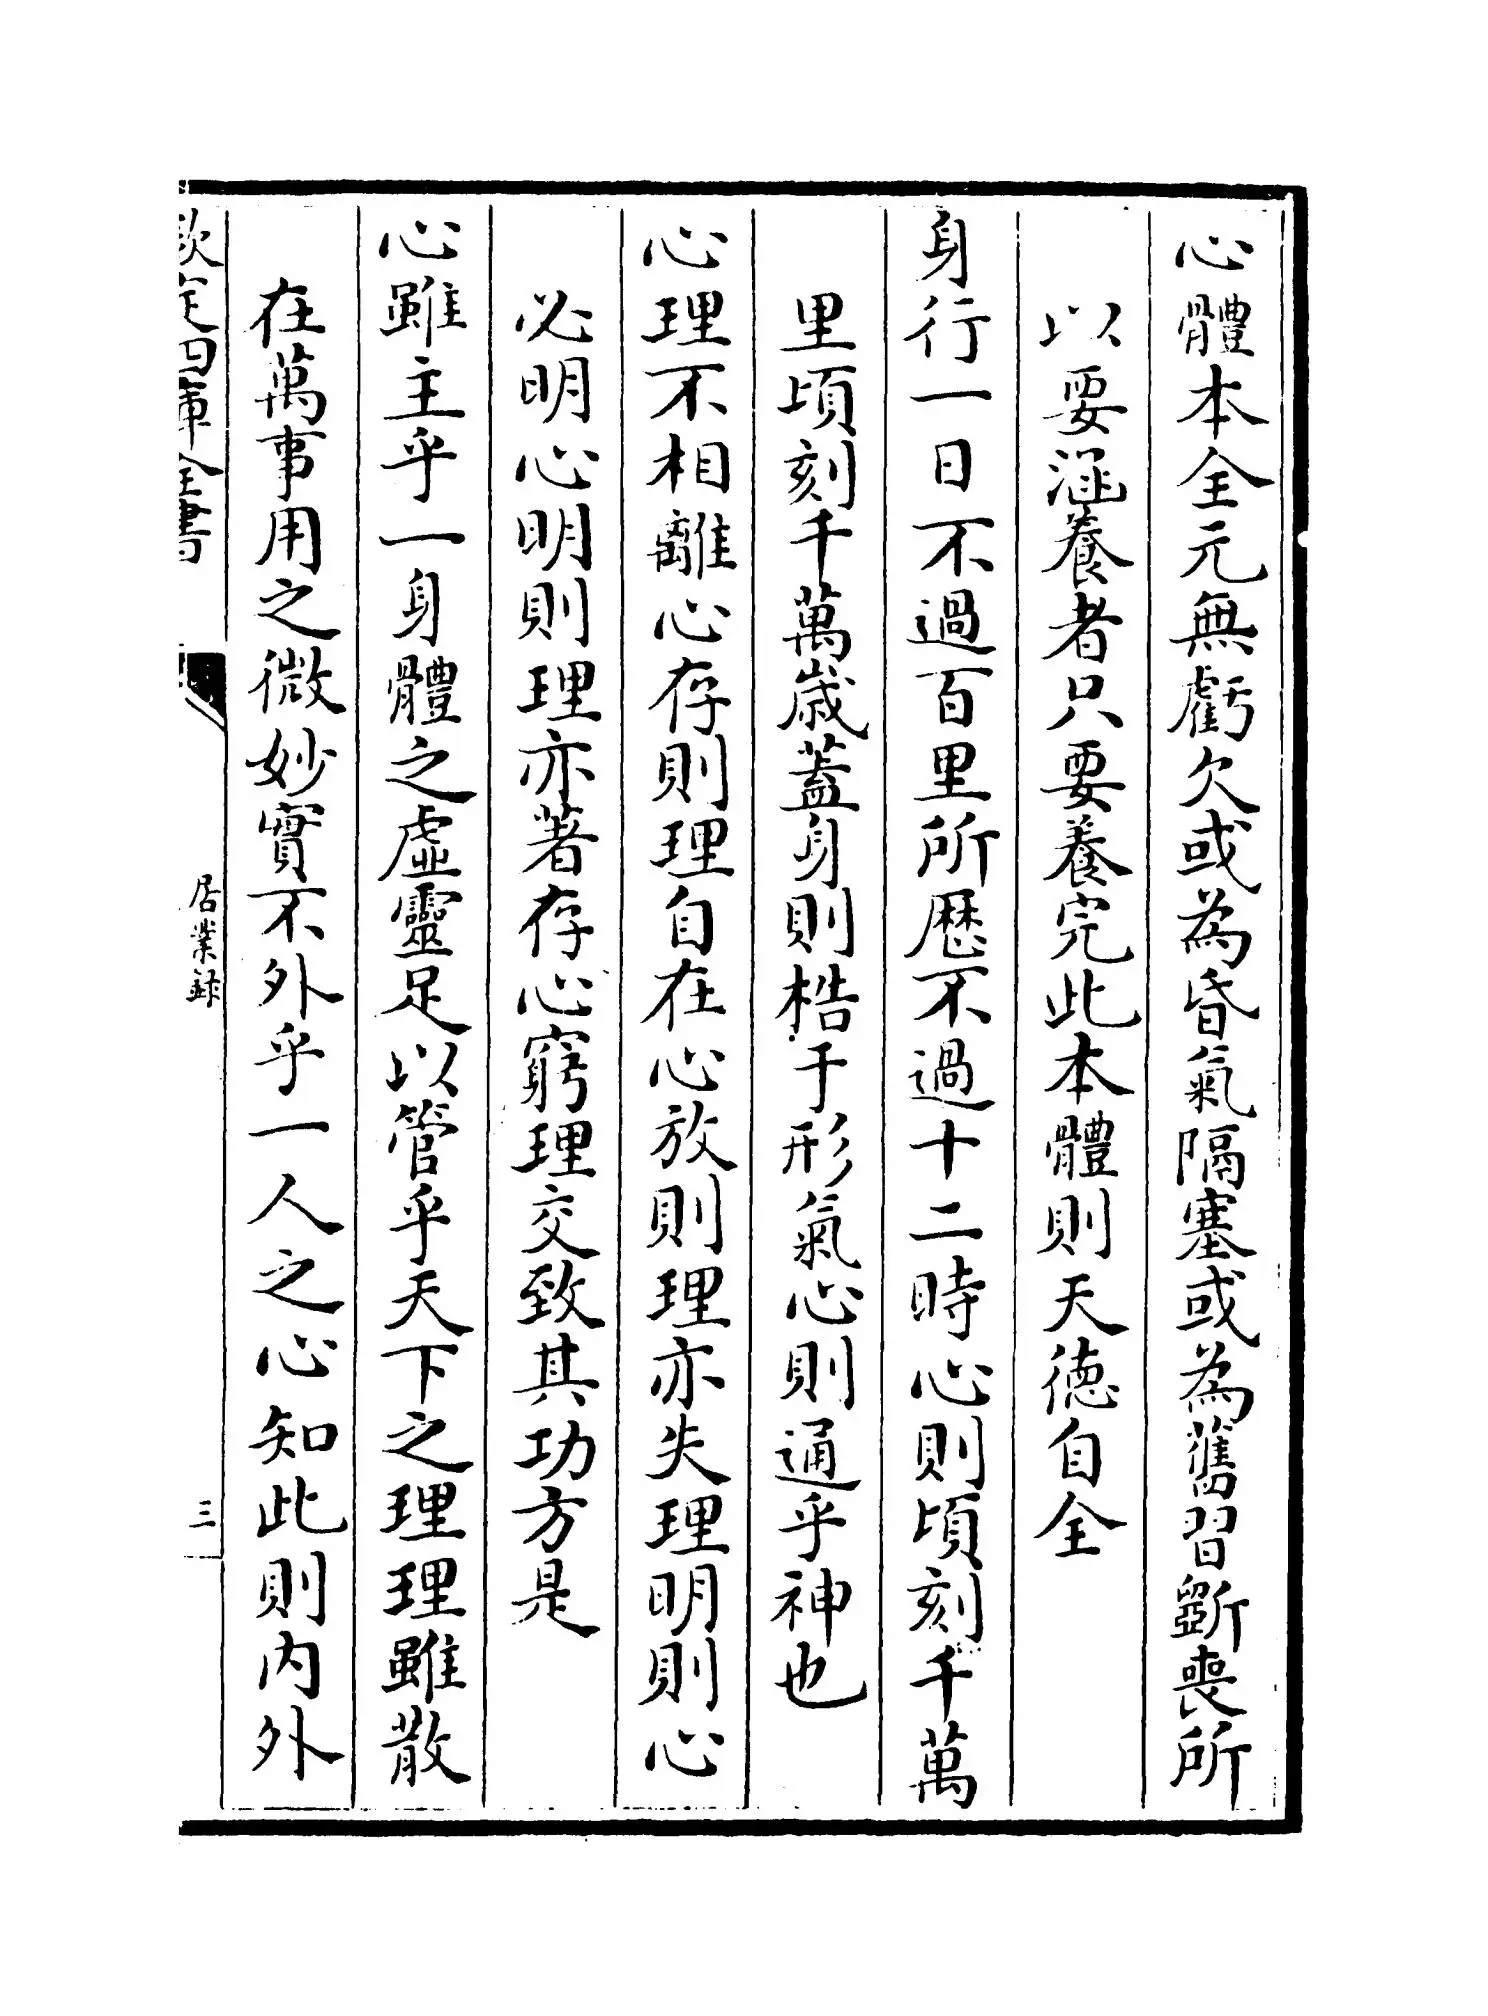 心體本全元無虧欠或為昏氣隔塞或為舊習斵喪所
以要涵養者只要養完此本體則天徳自全
身行一日不過百里所歴不過十二時心則頃刻千萬
里頃刻千萬歳葢身則梏于形氣心則通乎神也
心理不相離心存則理自在心放則理亦失理明則心
必明心明則理亦著存心窮理交致其功方是
心雖主乎一身體之虛靈足以管乎天下之理理雖散
在萬事用之微妙實不外乎一人之心知此則内外
欽定四庫全書
居業録
三